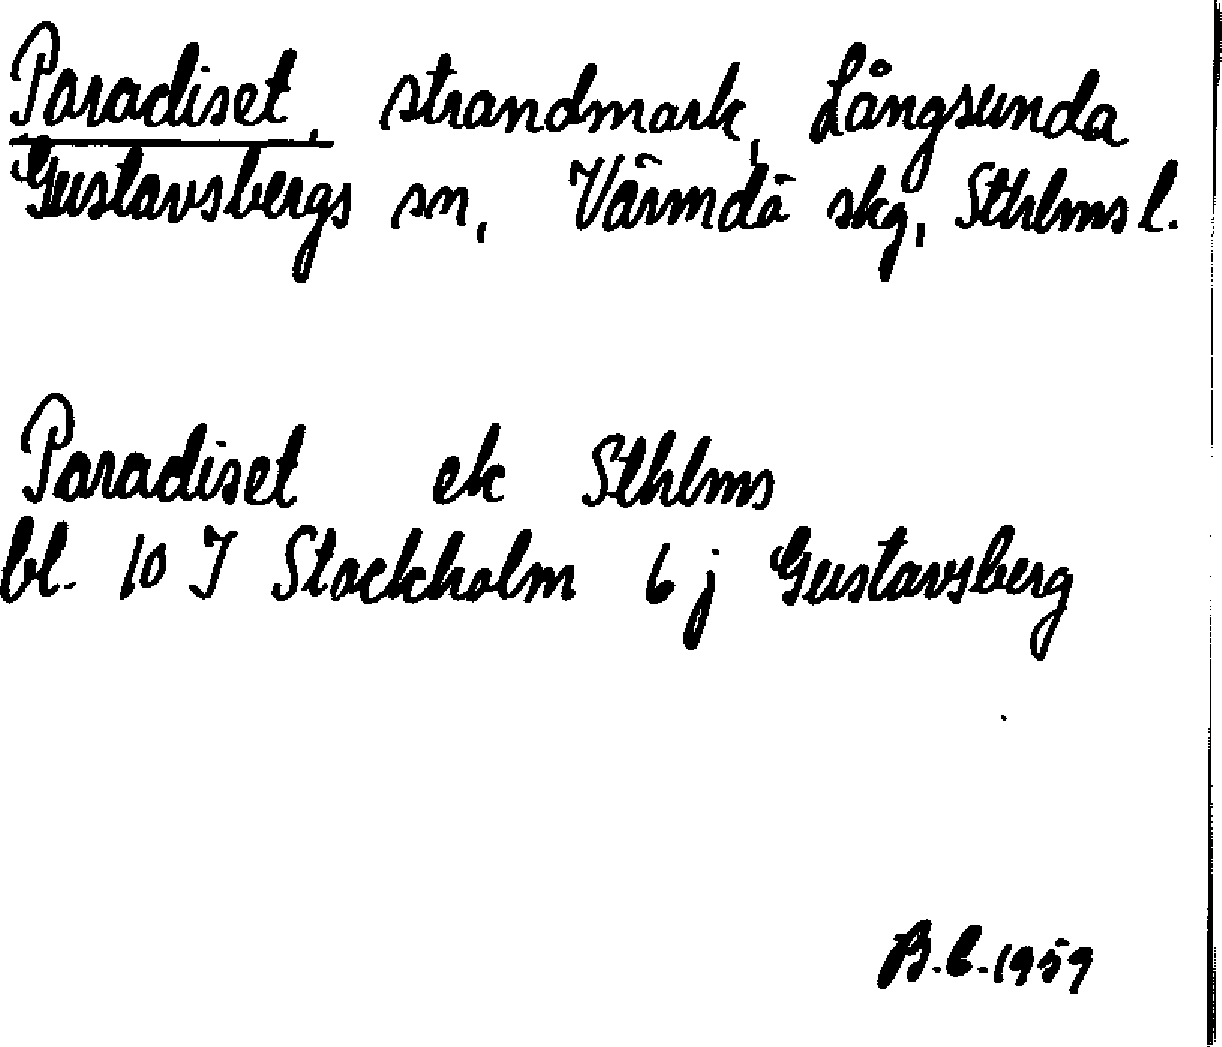 Paradiset, strandmark, Långsunda
Gustavsbergs sn, Värmdö skg, Sthlms l.
Paradiset ek Sthlms
bl. 10 I Stockholm 6 j Gustavsberg
B.C. 1959